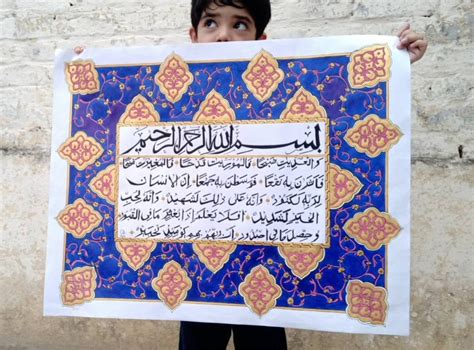 بسم الله الرحمن الرحيم
والعٰدیٰت ضبحا فالموریٰت قدحا فالمغیرٰت صبحا
فاثرن به نقعا فوسطن به جمعا ان الانسان
لربه لكنود وانه على ذلك لشهيد وانه لحب
الخير لشديد افلا يعلم اذا بعثر ما فى القبور
وحصل ما فى الصدور ان ربهم بهم يومئذ لخبير